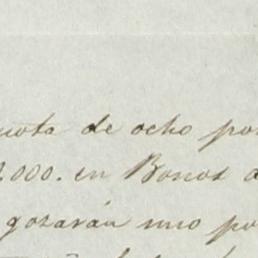 nota de ocho por
.000. en Bonos d
gozarán uno po